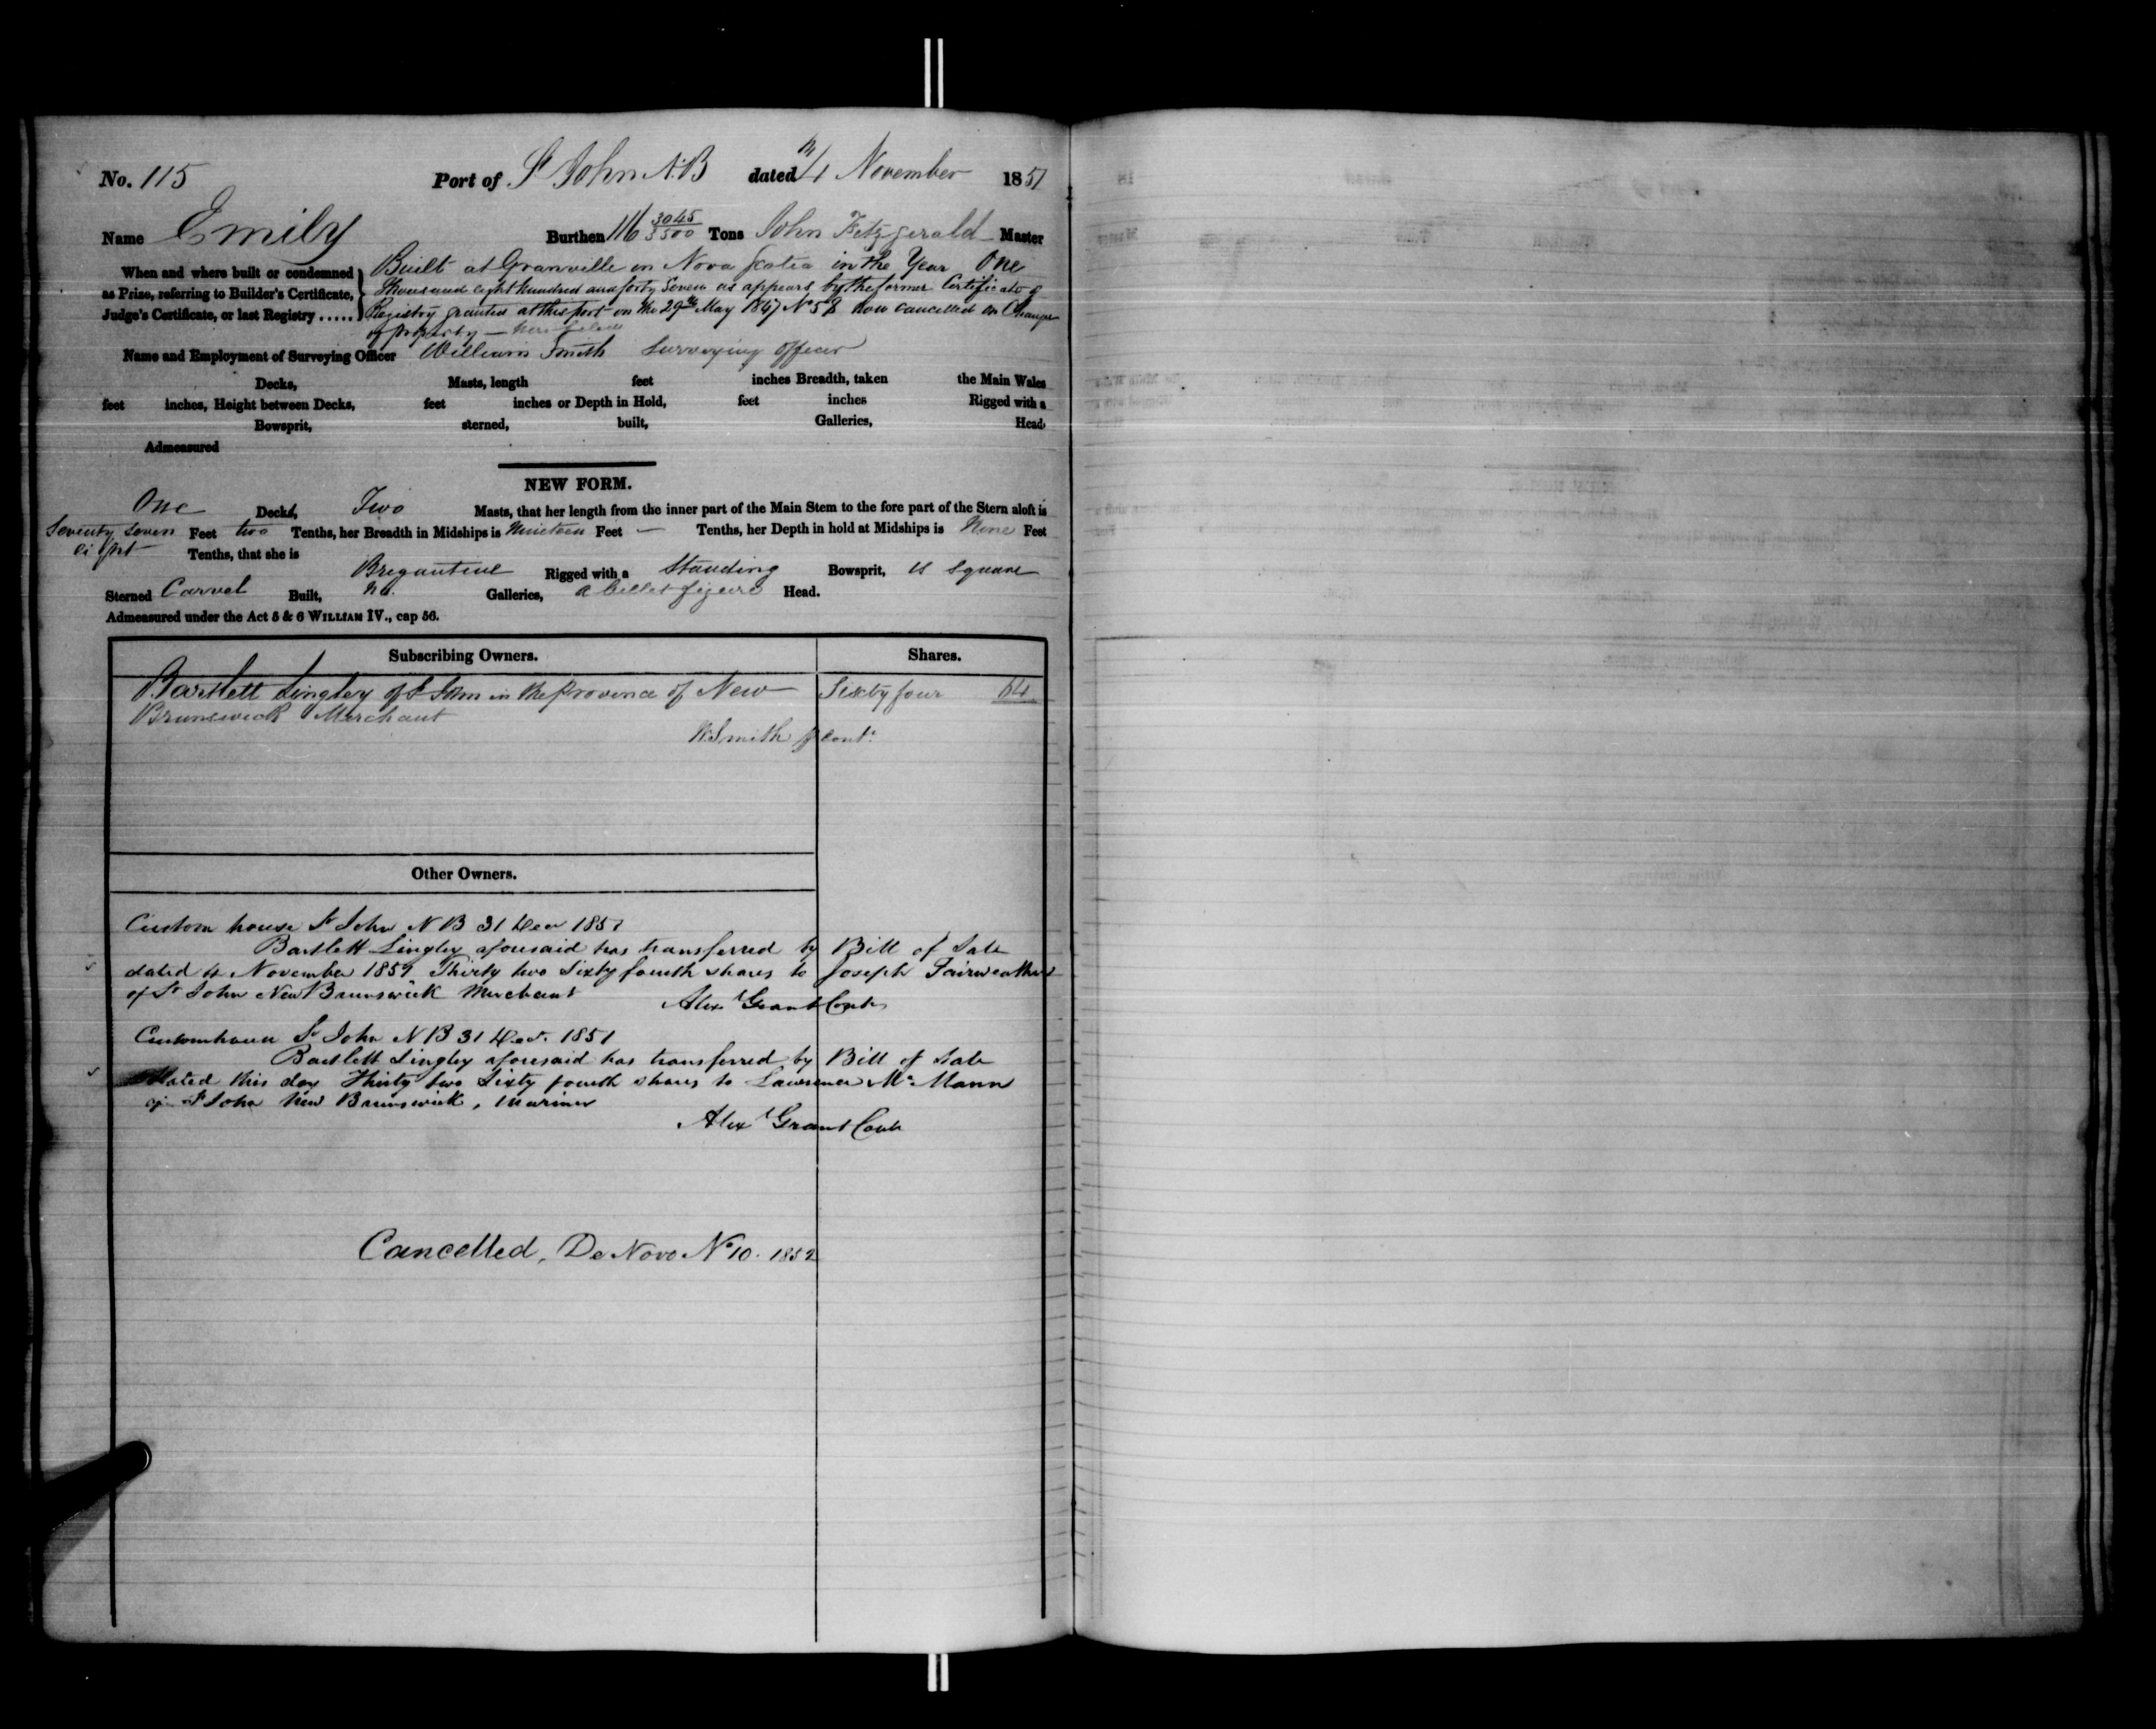 No. 115 Port of St John N.B dated 4 November 1851
Name Emily Burthen 116 3045/3500 Tons John Fitzgerald Master
When and where built or condemned as Prize, referring to Builder's Certificate, Judge's Certificate, or last Registry.....
Built at Granville in Nova Scotia in the Year One
Thousand eight hundred and forty Seven as appears by the former Certificate of
Registry granted at this port on the 29th May 1847 No 58 now cancelled on Change
of property
Name and Employment of Surveying Officer William Smith Surveying Officer
Decks, Masts, length feet inches Breadth, taken the Main Wales
feet inches, Height between Decks, feet inches or Depth in Hold, feet inches Rigged with a
Bowsprit, sterned, built, Galleries, Head
Admeasured
NEW FORM.
One Deck, Two Masts, that her length from the inner part of the Main Stem to the fore part of the Stern aloft is
Seventy Seven Feet two Tenths, her Breadth in Midships is Nineteen Feet — Tenths, her Depth in hold at Midships is Nine Feet
eight Tenths, that she is
Bregantine Rigged with a Standing Bowsprit, is Square
Sterned Carvel Built, no. Galleries, a billet figure Head.
Admeasured under the Act 5 & 6 WILLIAM IV., cap 56.
Subscribing Owners. Shares.
Bartlett Lingley of St John in the Province of New Sixty four 64
Brunswick Merchant
W Smith Cont.
Other Owners.
Custom house St John N B 31 Decr 1851
Bartlett Lingley aforesaid has transferred by Bill of Sale
dated 4 November 1851 Thirty two Sixty fourth shares to Joseph Fairweather
of St John New Brunswick Merchant
Alexr Grant Contr
Customhouse St John N B 31 Dec. 1851
Bartlett Lingley aforesaid has transferred by Bill of Sale
dated this day Thirty two Sixty fourth shares to Lawrence McMann
of St John New Brunswick, Mariner
Alexr Grant Contr
Cancelled, De Novo No 10. 1852